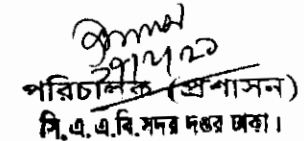 পরিচালক (প্রশাসন)
সি.এ.এ.বি. সদর দপ্তর ঢাকা।